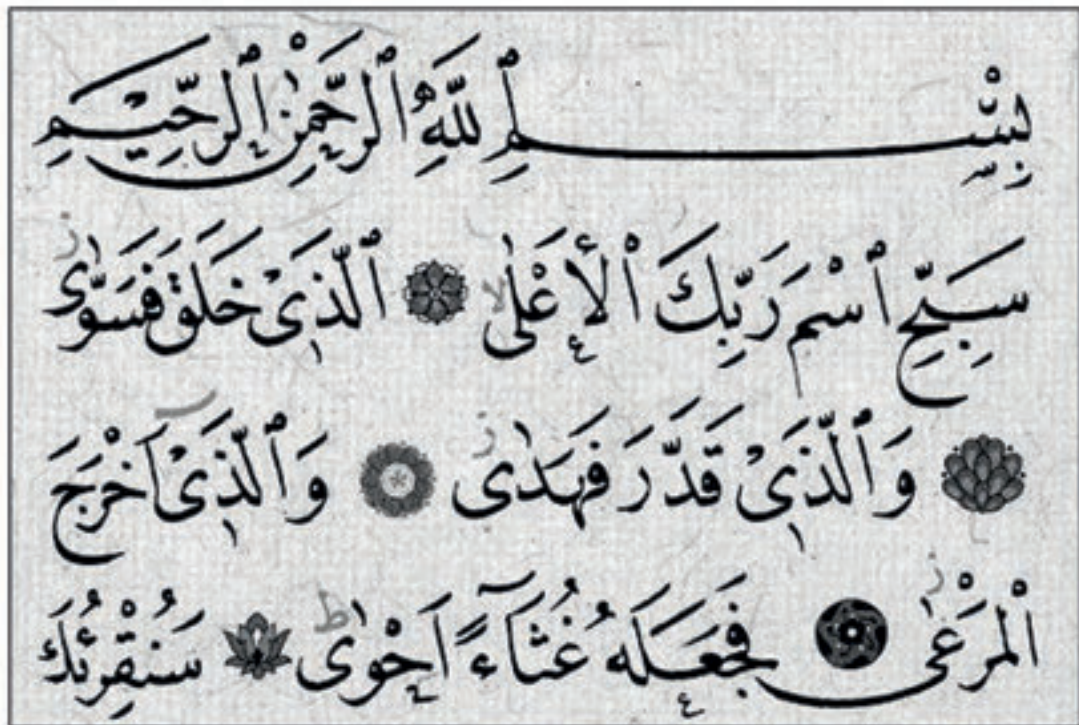 بِسْمِ ٱللّٰهِ ٱلرَّحْمٰنِ ٱلرَّحِيمِ
سَبِّحِ ٱسْمَ رَبِّكَ ٱلْأَعْلٰى لا ٱلَّذِىْ خَلَقَ فَسَوّٰى ز
وَٱلَّذِىْ قَدَّرَ فَهَدٰى ز وَٱلَّذِىْ اَخْرَجَ
ٱلْمَرْعٰى ز فَجَعَلَهُ غُثَآءً اَحْوٰى ط سَنُقْرِئُكَ